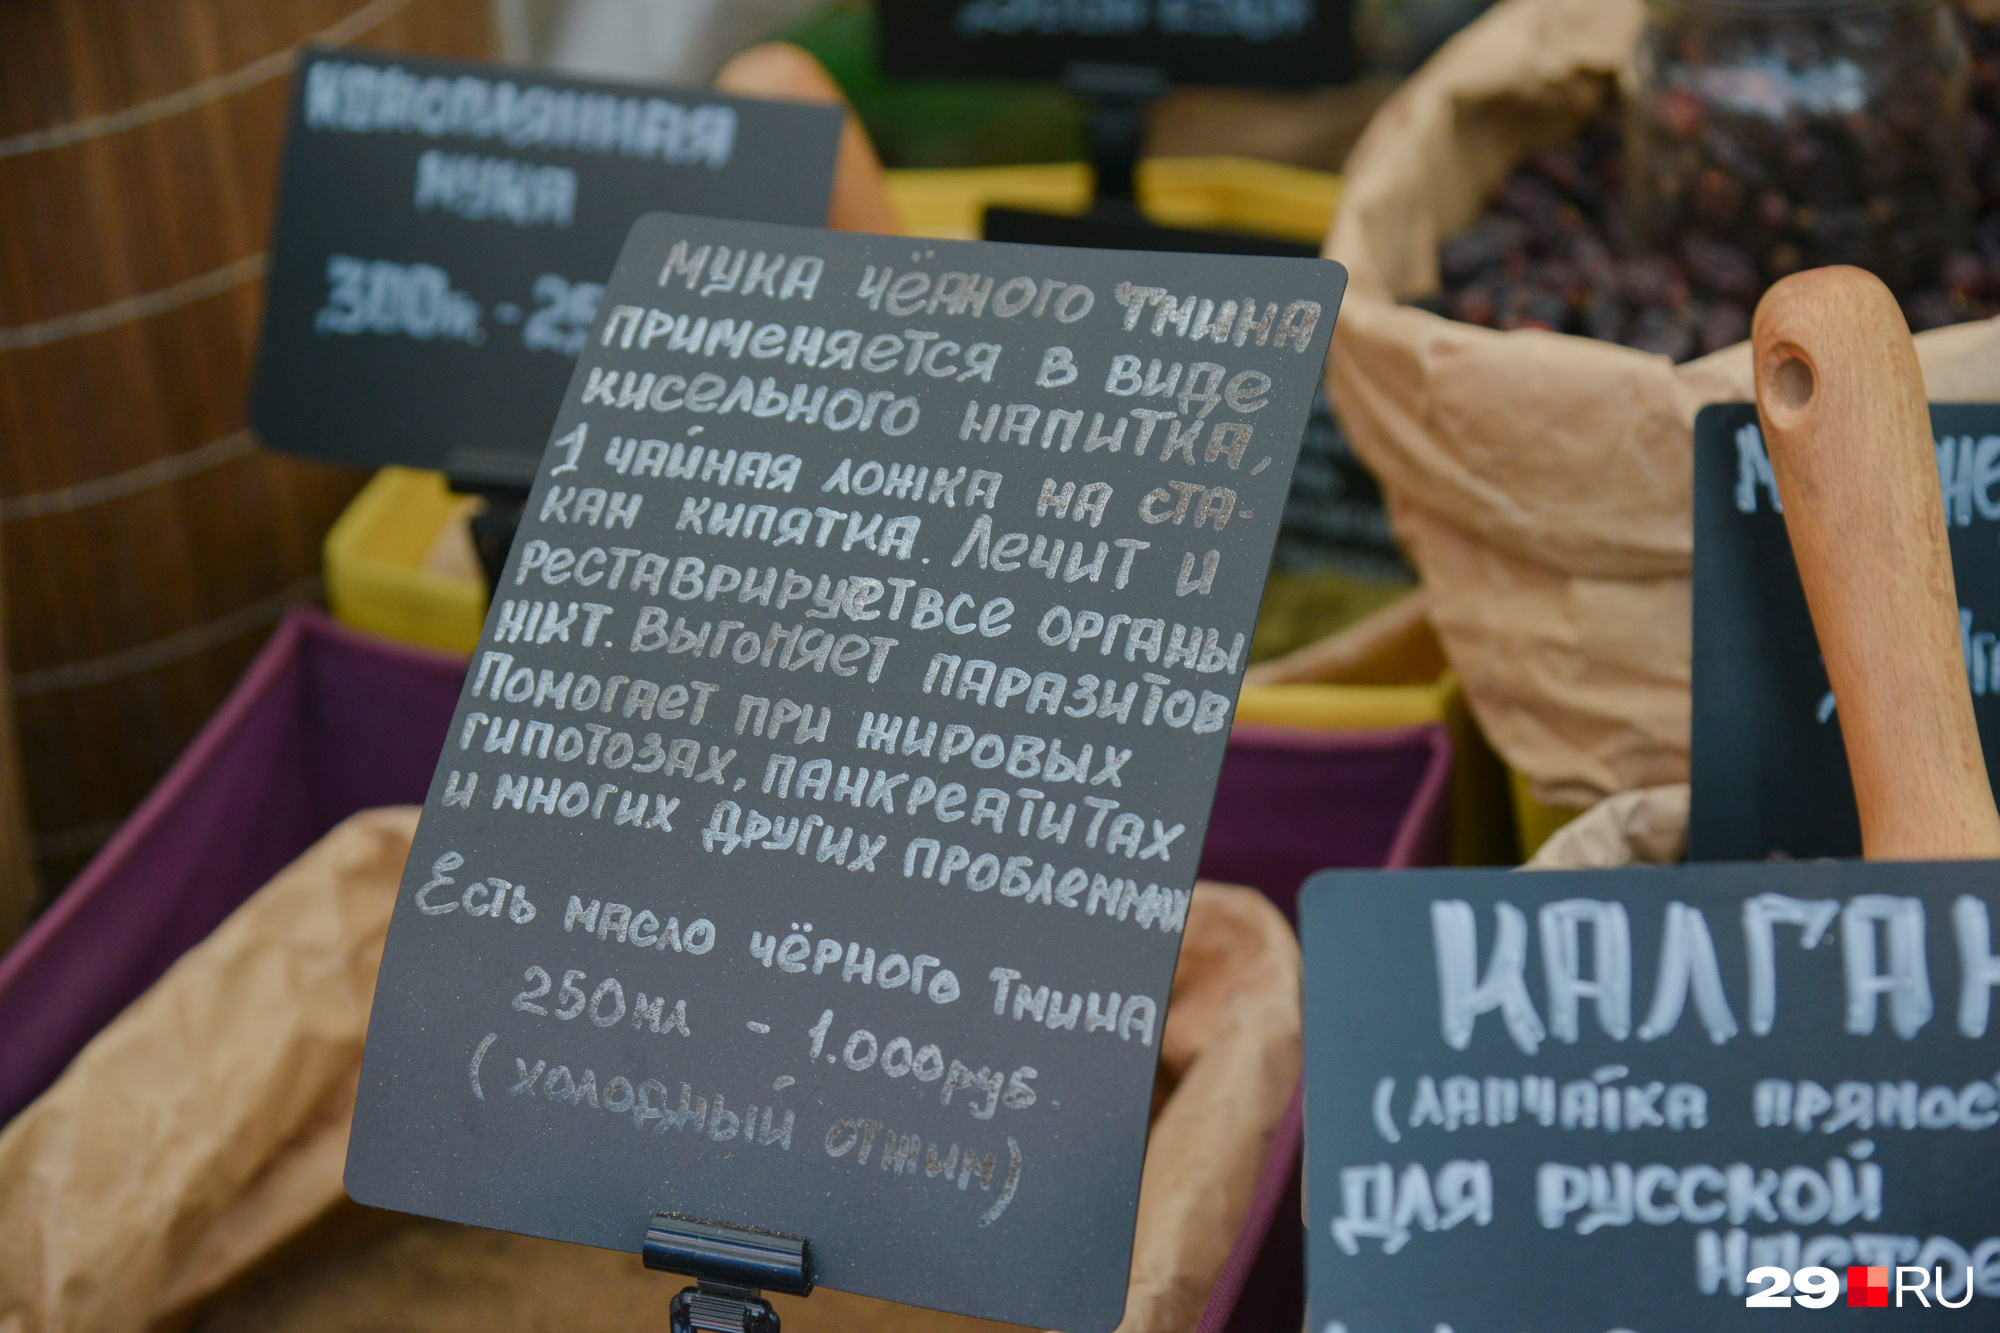 КОНОПЛЯННАЯ
МУКА
300г. - 25
МУКА ЧЁРНОГО ТМИНА
ПРИМЕНЯЕТСЯ В ВИДЕ
КИСЕЛЬНОГО НАПИТКА,
1 ЧАЙНАЯ ЛОЖКА НА СТА-
КАН КИПЯТКА. ЛЕЧИТ И
РЕСТАВРИРУЕТ ВСЕ ОРГАНЫ
ЖКТ. ВЫГОНЯЕТ ПАРАЗИТОВ
ПОМОГАЕТ ПРИ ЖИРОВЫХ
ГИПОТОЗАХ, ПАНКРЕАТИТАХ
И МНОГИХ ДРУГИХ ПРОБЛЕММАХ
ЕСТЬ МАСЛО ЧЁРНОГО ТМИНА
250 МЛ - 1.000 РУБ.
(ХОЛОДНЫЙ ОТЖИМ)
КАЛГАН
(ЛАПЧАТКА ПРЯМОС
ДЛЯ РУССКОЙ
НАСТОЕ
29.RU